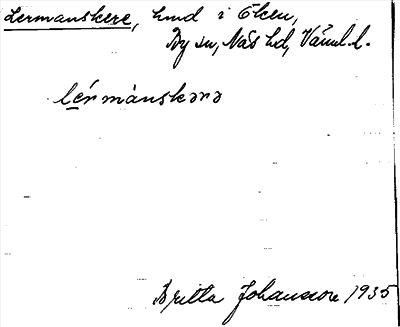 Lermanskere, hmd i Eken,
By sn, Näs hd, Värml. l.
lérmànskərə
Britta Johansson 1935